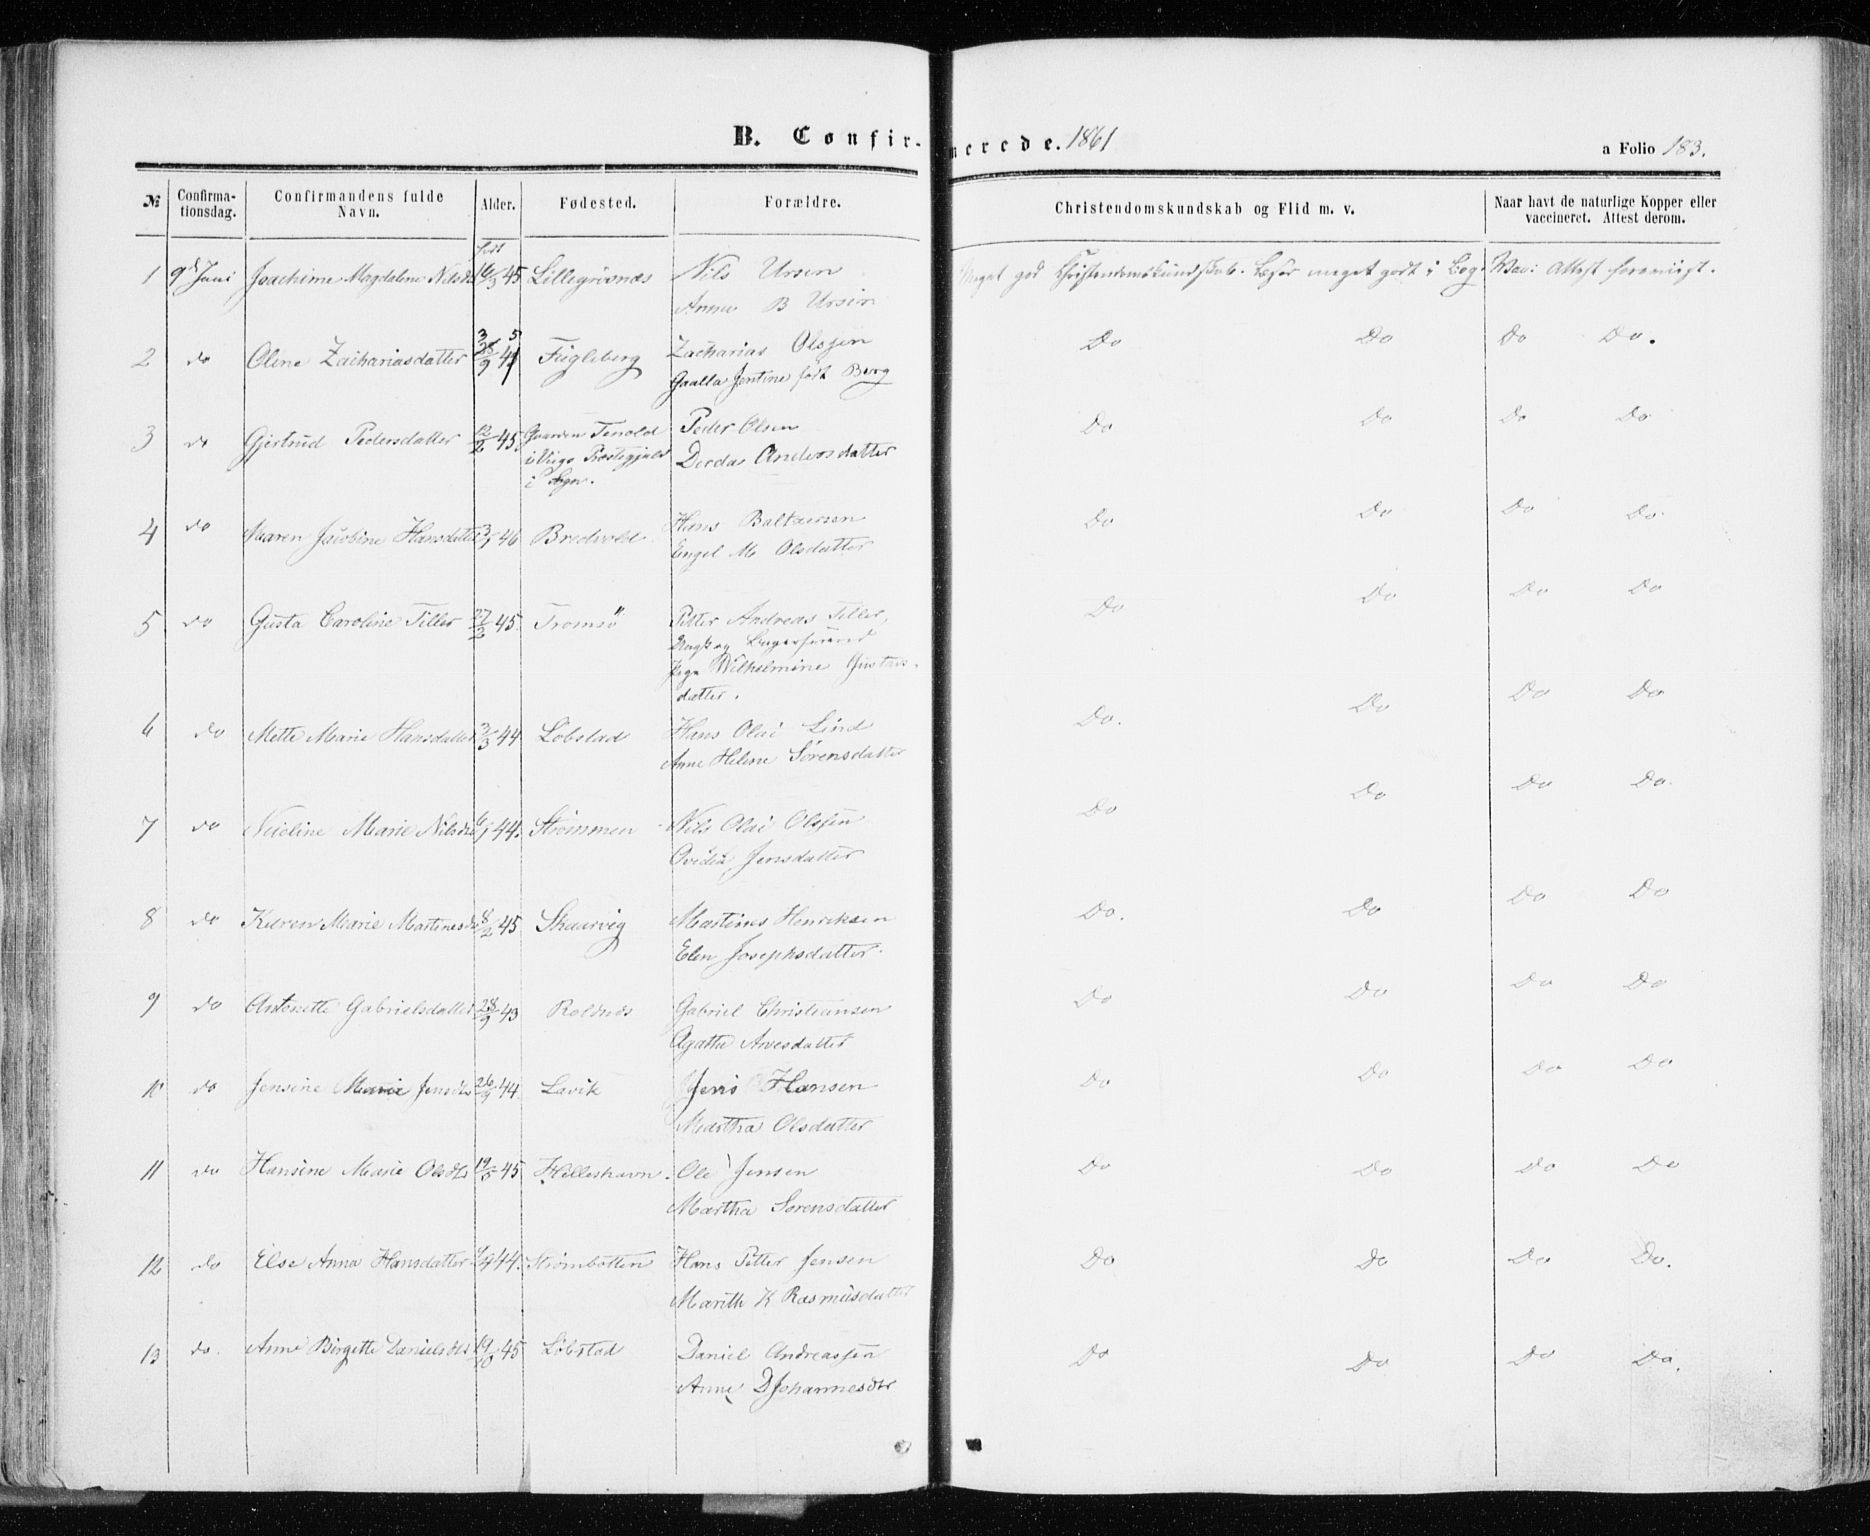 B. Confirmerede. 1861
a Folio 183.
№ Confirma-tionsdag. Confirmandens fulde Navn. Alder. Fødested. Forældre. Christendomskundskab og Flid m. v. Naar havt de naturlige Kopper eller vaccineret. Attest derom.
født
1 9d Juni Joachime Magdalene Nilsdtr 16/3 45 Lillegrisnæs Nils Ursin Meget god Christendomskundskab. Læser meget godt i Bog. Attest foreviist.
Anna B Ursin
2 do Oline Zachariasdatter Fugleberg Zacharias Olssen Do Do Do Do.
Jentine født Berg
3 do Gjertrud Pedersdatter 12/2 45. Gaarden Tenold Peder Olsen Do Do Do Do
Præstegjeld Anders datter
i Sogn.
4 do Maren Jacobine Hansdatter 46 Bredvold Hans Baltzersen Do Do Do Do
Engel M. Olsdatter
5 do Gusta Caroline Tiller 27/2 45. Tromsø Petter Andreas Tiller, Do Do Do Do
Pige Wilhelmine Gustavs-
datter.
6 do Mette Marie Hansdatter 3/3 44 Løbstad Hans Olai Lind Do. Do Do Do
Anne Helene Sørensdatter
7 do Marie Nilsdtr 44. Strømmen Nils Olai Olssen Do Do Do Do.
Ovidia Jensdatter
8 do Karen Marie Martinesdtr 8/2 45 Skaarvig Martines Henriksen Do. Do Do Do
Elen Josephsdatter.
9 do Antonette Gabrielsdatter 28/9 43 Roldnes Gabriel Christiansen Do Do Do Do
Agathe Arnesdatter
10 do Jensine Marie Jensdtr 26/9 44. Lavik Jens Hansen Do Do Do Do
Martha Olsdatter
11 do Hansine Marie Olsdtr 19/5 45 Hilleshavn. Ole Jensen Do Do Do Do
Martha Sørensdatter
12 do Else Anna Hansdatter 44. Strømbotten Hans Petter Jensen Do Do Do Do.
Marith K Rasmusdatter
13 do. Anne Birgette Danielsdtr 19/10 45 Løbstad Daniel Andreassen Do Do Do Do.
Anne D Johannesdtr